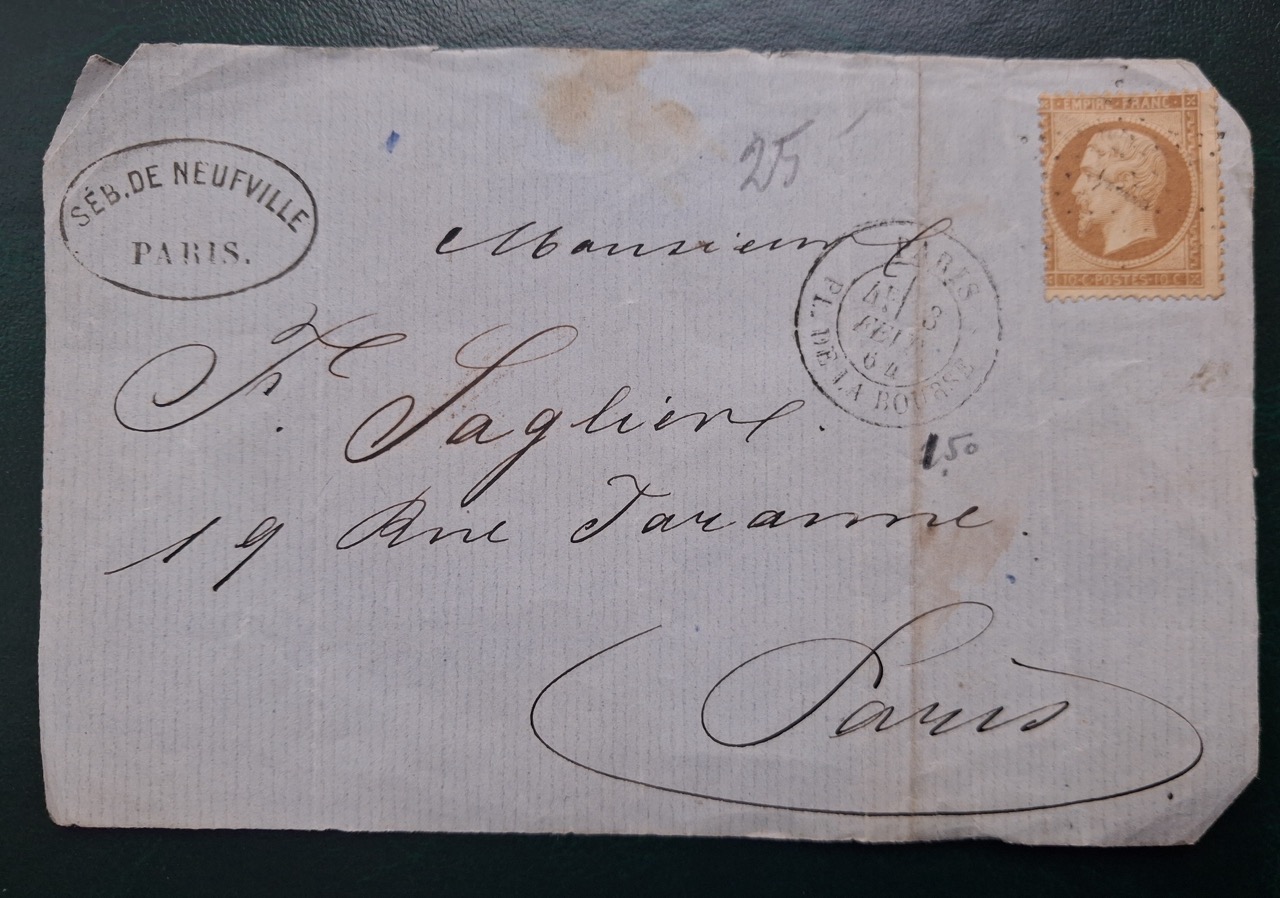 SÉB. DE NEUFVILLE
PARIS.
25
EMPIRE FRANC
10 C. POSTES 10 C.
Monsieur
PARIS
3
FEVR.
64
PL. DE LA BOURSE
Saglier
1.50
19 Rue Taranne.
Paris